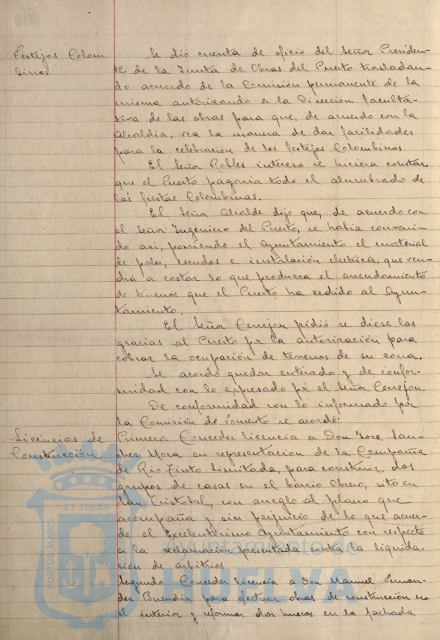 Festejos Colom
binos
Se dió cuenta de oficio del Señor Presiden-
te de la Junta de Obras del Puerto trasladan-
do acuerdo de la Comisión permanente de la
misma autorizando a la Dirección faculta-
tiva de las obras para que, de acuerdo con la
Alcaldia, vea la manera de dar facilidades
para la celebración de los festejos Colombinos.
El Señor Robles interesó se hiciera constar
que el Puerto pagaria todo el alumbrado de
las fiestas Colombinas.
El Señor Alcalde dijo que, de acuerdo con
el Señor Ingeniero del Puerto, se habia conveni-
do asi, poniendo el Ayuntamiento el material
de palos, escudos e instalación electrica, que ven-
dria a costar lo que produzca el arrendamiento
de terrenos que el Puerto ha cedido al Ayun-
tamiento.
El Señor Cerejon pidió se diese las
gracias al Puerto por la autorización para
cobrar la ocupación de terrenos de su zona.
Se acordó quedar enterado y de confor-
midad con lo expresado por el Señor Cerejon.
De conformidad con lo informado por
la Comisión de Fomento se acordó:
Licencias de
Construcción
Primero Conceder licencia a Don Jose San-
chez Mora en representación de la Compañia
de Rio Tinto Limitada, para construir dos
grupos de casas en el barrio Obrero, sito en
San Cristobal, con arreglo al plano que
acompaña y sin perjuicio de lo que acuer-
de el Excelentisimo Ayuntamiento con respecto
a la reclamación presentada contra la liquida-
ción de arbitrios
Segundo Conceder licencia a Don Manuel Fernan-
dez Buendia para efectuar obras de construcción en
el interior y reforma dos huecos en la fachada